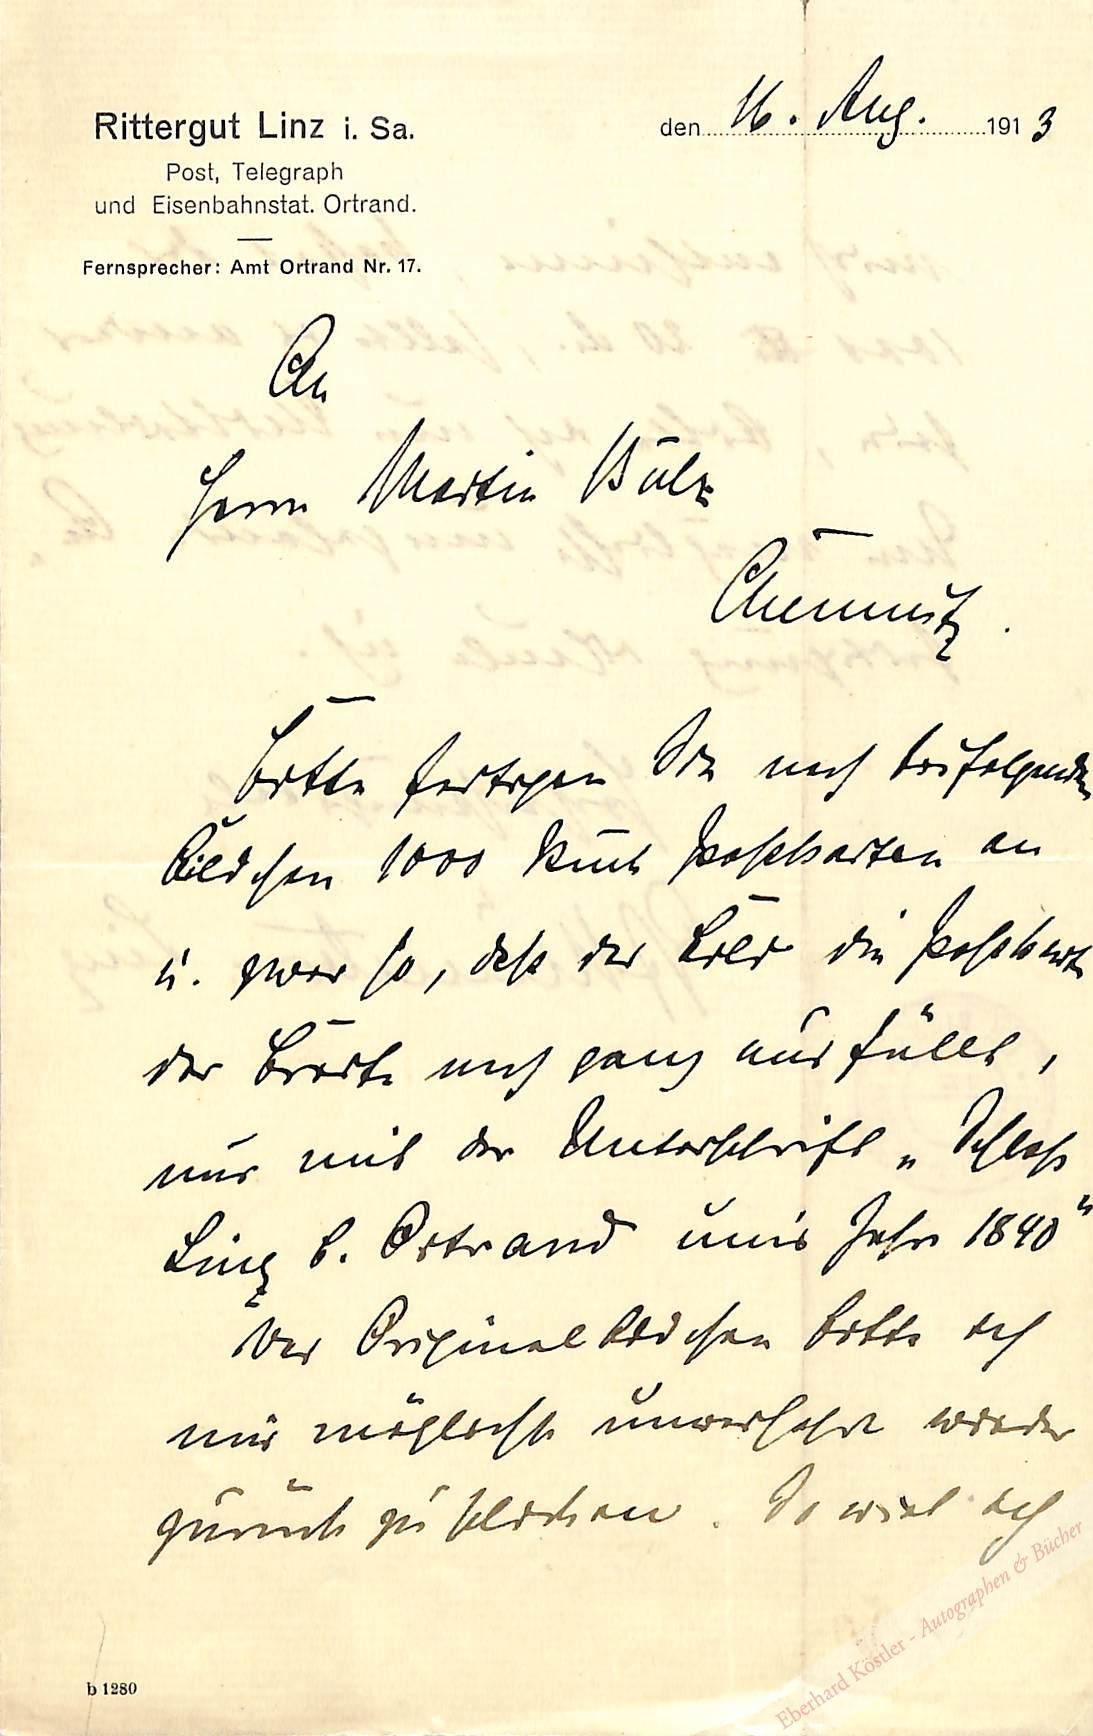 Rittergut Linz i. Sa.
Post, Telegraph
und Eisenbahnstat. Ortrand.
Fernsprecher: Amt Ortrand Nr. 17.
den 16. Aug. 1913
An
Herrn Martin Bülz
Chemnitz.
Bitte fertigen Sie nach beifolgenden
Bildchen 1000 Stück Postkarten an
u. zwar so, daß das Bild die Postkarte
der Breite nach ganz ausfüllt,
nur mit der Unterschrift „Schloß
Linz b. Ortrand um's Jahr 1840"
Das Originalbildchen bitte ich
mir möglichst unversehrt wieder
zurück zu schicken. So viel ich
b 1280
Eberhard Köstler - Autographen & Bücher